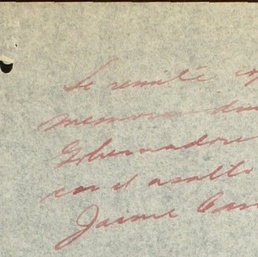 Se remite
memorandum
Gobernadore
con el asalto
Jaime